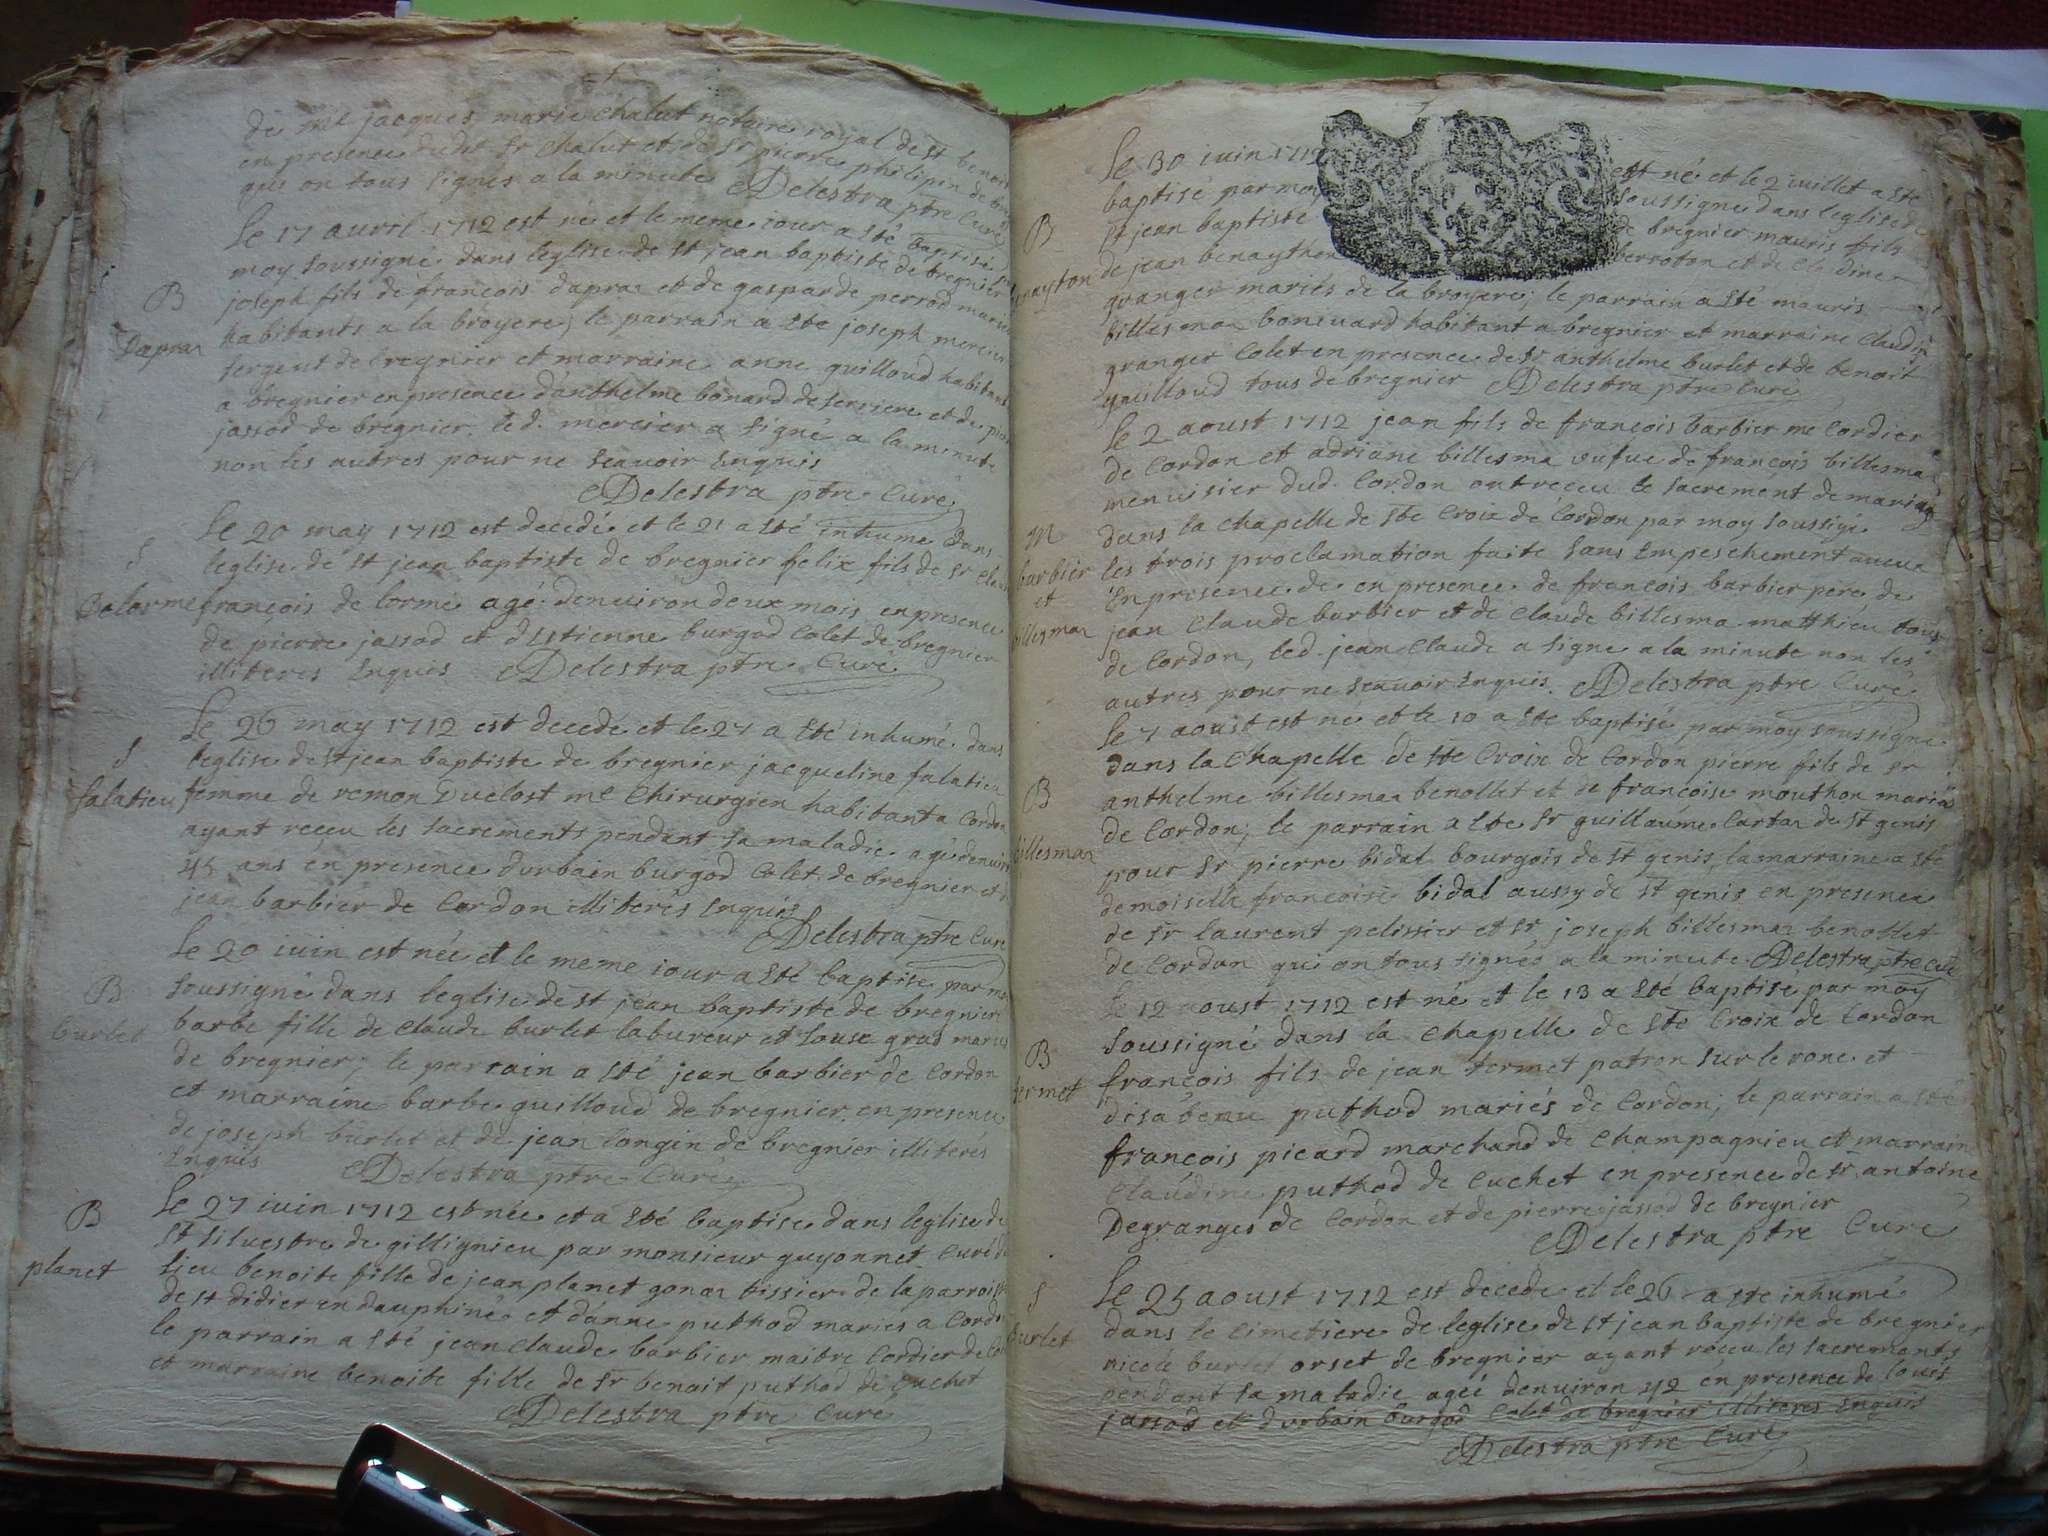 de me jacques marie chalut notaire royal de st benoit
en presence dudit sr chalut et de sr pierre philipin de
qui on tous signés a la minute Delestra ptre Curé
Le 17 auril 1712 est né et le meme iour a sté baptisé
moy soussigné dans leglise de st jean baptiste de bregnier
B
joseph fils de françois dapraz et de gasparde perrod mariés
Dapraz
habitants a la broyere; le parrain a sté joseph mercier
sergent de bregnier et marraine anne guilloud habitans
a bregnier en presence danthelme bonard de serriere et de
jassod de bregnier. led. mercier a signé a la minute
non les autres pour ne scauoir enquis
Delestra ptre Curé
Le 20 may 1712 est decedé et le 21 a sté inhumé dans
S
leglise de st jean baptiste de bregnier felix fils de sr
Delorme
françois de lorme agé denuiron deux mois en presence
de pierre jassod et destienne burgod Colet de bregnier
illiteres enquis Delestra ptre Curé
Le 26 may 1712 est decede et le 27 a sté inhumé dans
S
leglise de st jean baptiste de bregnier jacqueline falatieu
falatieu
femme de remon Duclost me Chirurgien habitant a Cordon
ayant reçeu les sacrements pendant sa maladie agé denuiron
45 ans en presence durbain burgod Colet de bregnier et
jean barbier de Cordon illiterés enquis
Delestra ptre Curé
Le 20 iuin est née et le meme iour a sté baptise par moy
B
soussigné dans leglise de st jean baptiste de bregnier
burlet
barbe fille de Claude burlet labureur et louse grad mariés
de bregnier; le parrain a sté jean barbier de Cordon
et marraine barbe guilloud de bregnier en presence
de joseph burlet et de jean longin de bregnier illiterés
enquis Delestra ptre Curé
Le 27 iuin 1712 est née et a sté baptise dans leglise de
B
st siluestre de gillignieu par monsieur guyonnet Curé
planet
lieu benoite fille de jean planet gonaz tissier de la parroisse
de st didier en dauphiné et danne puthod mariés a Cordon
le parrain a sté jean Claude barbier maitre Cordier de
et marraine benoite fille de sr benoit puthod de Cuchet
Delestra ptre Curé
Le 30 iuin 1712 est né et le 2 iuillet a sté
baptisé par moy soussigné dans leglise de
B
st jean baptiste de bregnier mauris fils
benayton
de jean benaython berroton et de Cladine
granger mariés de la broyere; le parrain a sté mauris
billesmaz bonivard habitant a bregnier et marraine Claudine
granger Colet en presence de sr anthelme burlet et de benoit
guilloud tous de bregnier Delestra ptre Curé
Le 2 aoust 1712 jean fils de françois barbier me Cordier
de Cordon et adriane billesma veufue de françois billesmaz
menuisier dud. Cordon ont receu le sacrement de mariage
M
dans la Chapelle de Ste Croix de Cordon par moy soussigné
barbier
les trois proclamation faite sans empeschement aucun
et
En presence de en presence de françois barbier pere de
billesmaz
jean Claude barbier et de Claude billesma matthieu tous
de Cordon, led. jean Claude a signe a la minute non les
autres pour ne scauoir enquis. Delestra ptre Curé
Le 7 aoust est né et le 10 a sté baptisé par moy soussigné
dans la Chapelle de Ste Croix de Cordon pierre fils de sr
B
anthelme billesmaz benollet et de françoise mouthon mariés
billesmaz
de Cordon; le parrain a sté sr guillaume Cartaz de st genis
pour sr pierre bidal bourgois de st genis, la marraine a sté
demoiselle françoise bidal aussy de st genis en presence
de sr laurent pelissier et sr joseph billesmaz benollet
de Cordon qui on tous signés a la minute Delestra ptre Curé
Le 12 aoust 1712 est né et le 13 a sté baptisé par moy
soussigné dans la Chapelle de Ste Croix de Cordon
B
françois fils de jean termet patron sur le rone et
termet
disabeau puthod mariés de Cordon; le parrain a sté
françois picard marchand de Champagnieu et marraine
Claudine puthod de Cuchet en presence de sr antoine
Degranges de Cordon et de pierre jassod de bregnier
Delestra ptre Curé
S
Le 25 aoust 1712 est decede et le 26 a ste inhumé
burlet
dans le Cimetiere de leglise de st jean baptiste de bregnier
nicole burlet orset de bregnier ayant reçeu les sacrements
pendant sa maladie agée denuiron 42 en presence de louis
jassod et durbain burgod Colet de bregnier illiteres enquis
Delestra ptre Curé